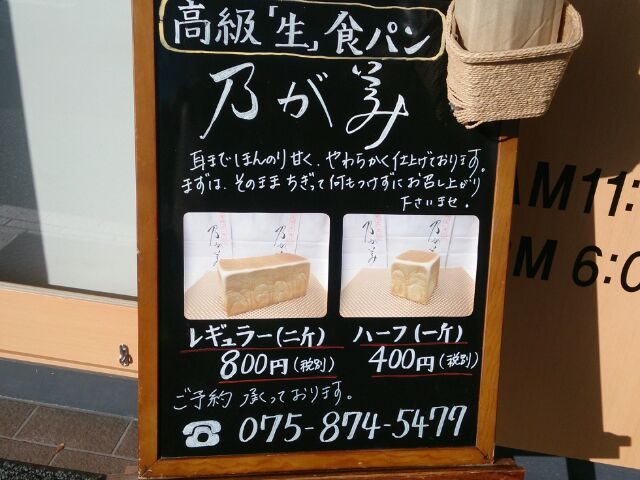 高級「生」食パン
乃が美
耳までほんのり甘く、やわらかく仕上げております。
まずは、そのままちぎって何もつけずにお召し上がり
下さいませ。
乃が美
乃が美
乃が美
レギュラー(二斤)
800円(税別)
ハーフ(一斤)
400円(税別)
ご予約 承っております。
☎ 075-874-5477
AM11:
PM 6:0